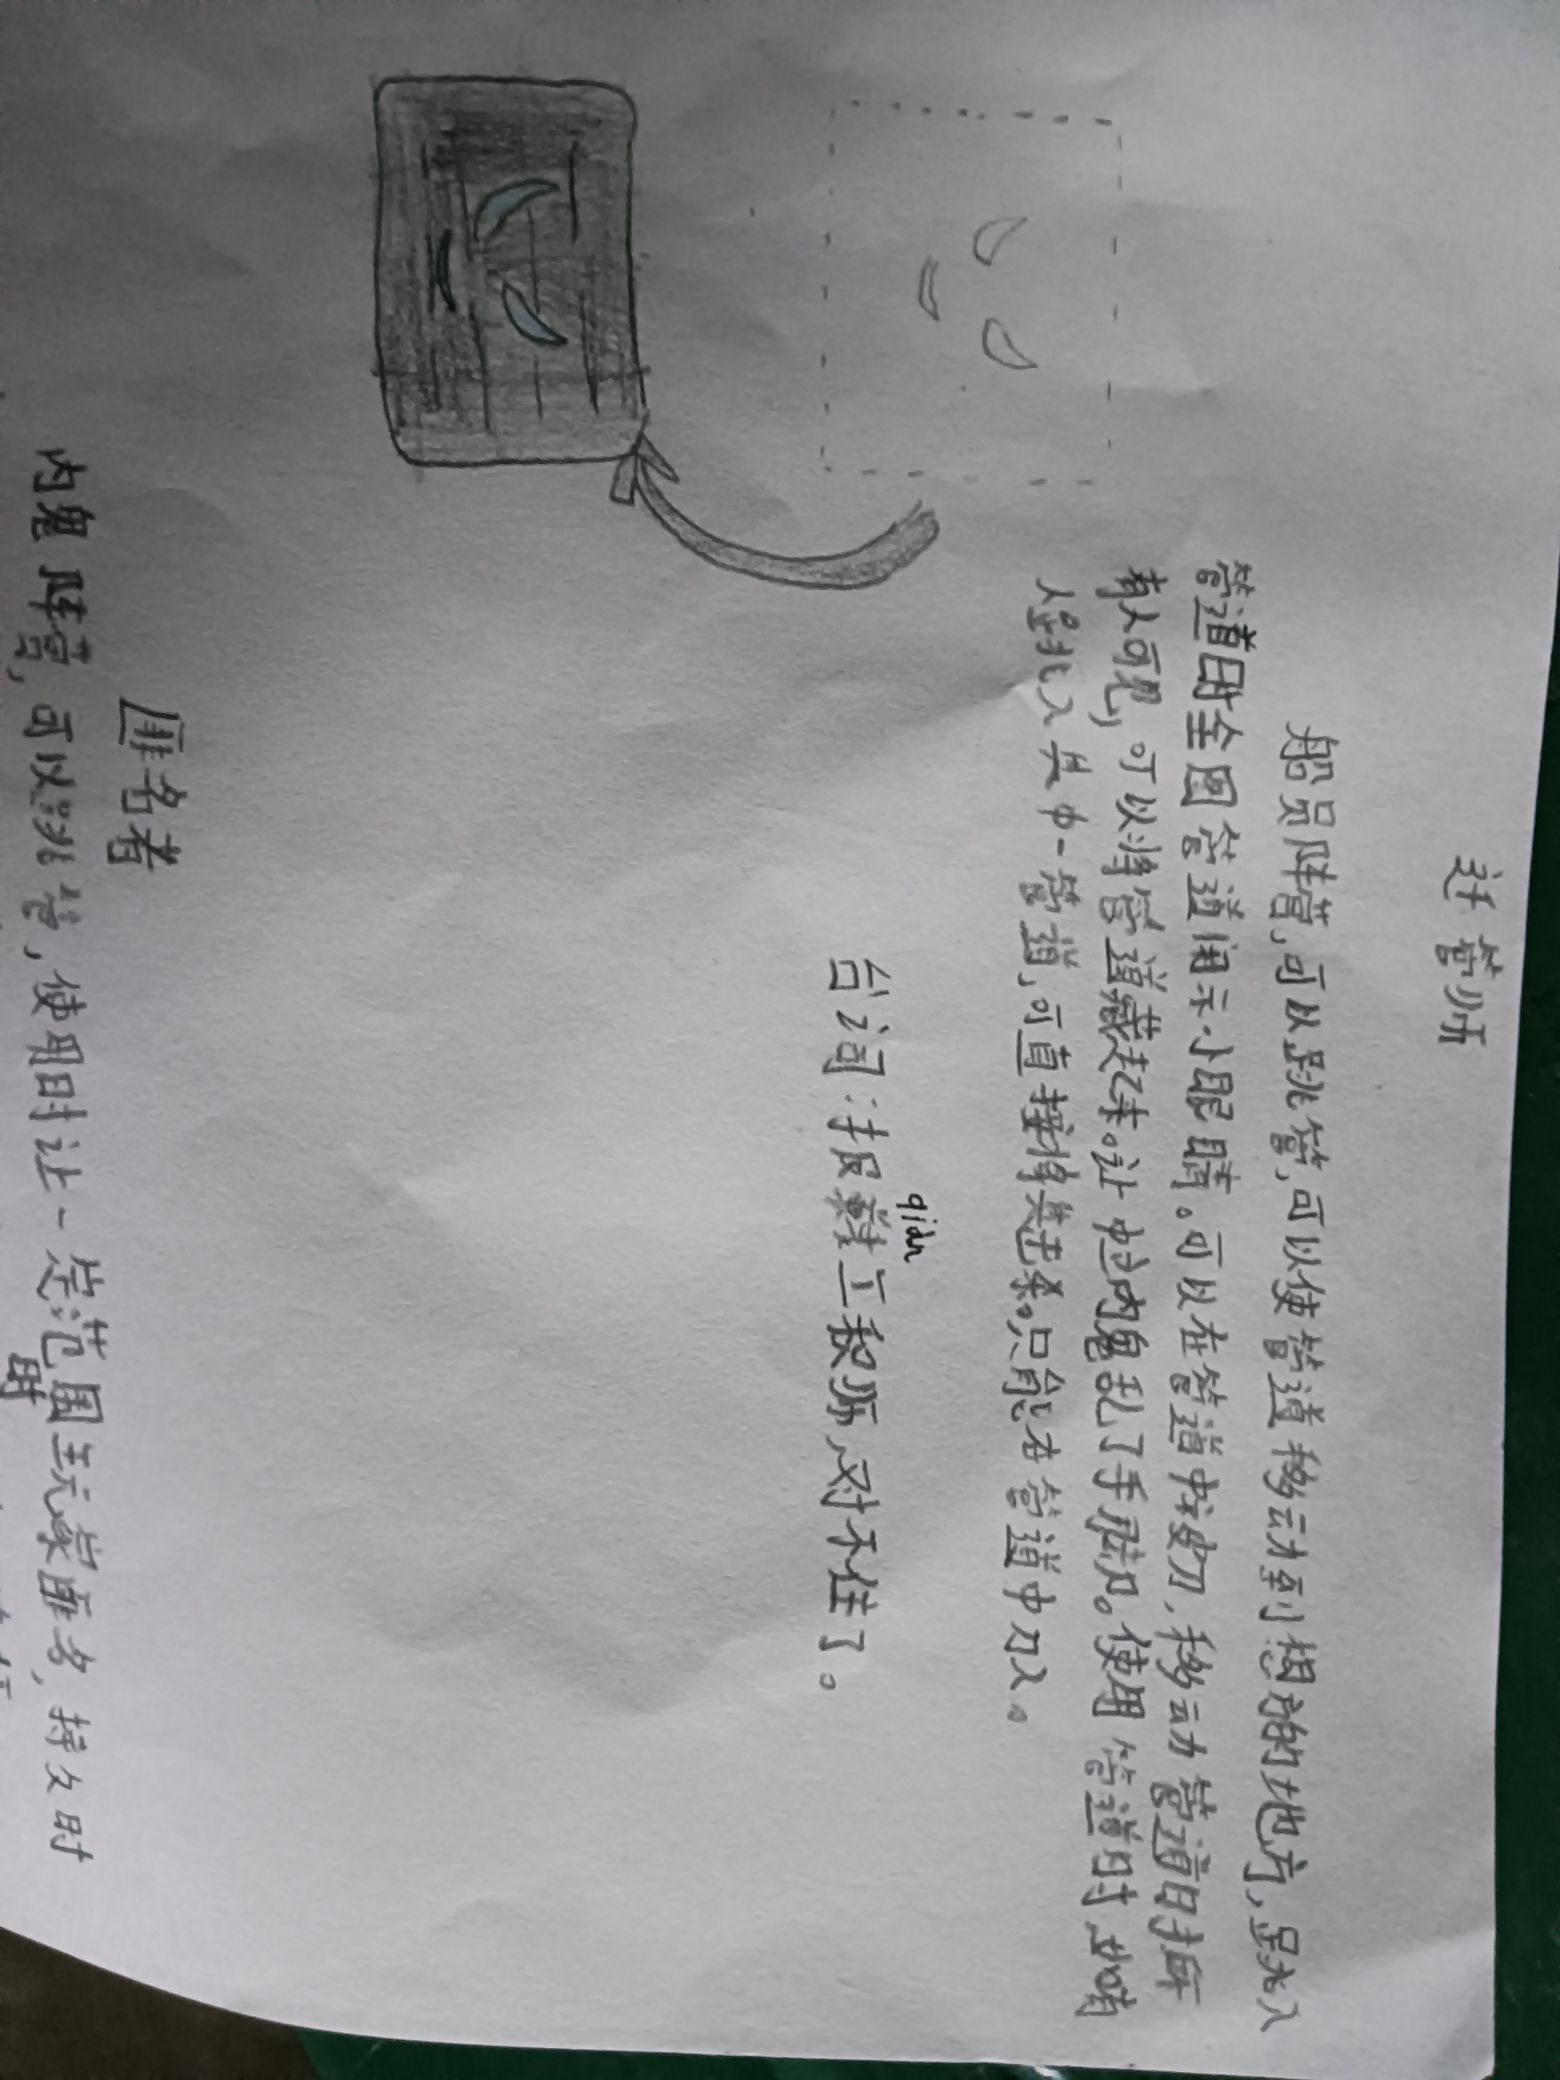 迁管师
船员阵营,可以跳管,可以使管道移动到想放的地方,跳入
管道时全图管道闭示小眼睛。可以在管道中被刀,移动管道时所
有人可见,可以将管道藏起来。让内鬼乱了手脚。使用管道时如有
人跳入其中一管道,可直接将其击杀。只能在管道中刀人。
qiān
台词:报 工程师,对不住了。
匿名者
内鬼阵营,可以跳管,使用时让一定范围玩家匿名,持久时
时